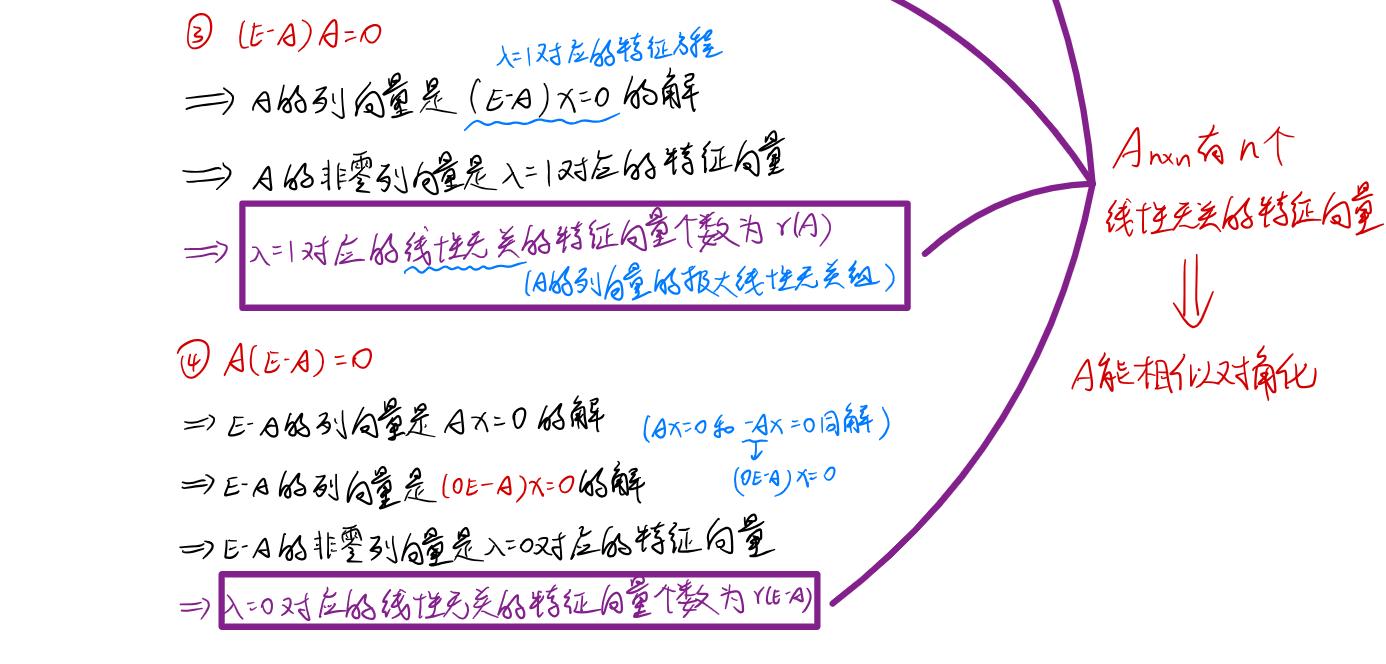 ③ (E-A)A=0
λ=1对应的特征方程
⇒ A的列向量是(E-A)x=0的解
⇒ A的非零列向量是λ=1对应的特征向量
⇒ λ=1对应的线性无关的特征向量个数为r(A)
(A的列向量的极大线性无关组)
④ A(E-A)=0
⇒ E-A的列向量是Ax=0的解 (Ax=0和-Ax=0同解)
↓
(0E-A)x=0
⇒ E-A的列向量是(0E-A)x=0的解
⇒ E-A的非零列向量是λ=0对应的特征向量
⇒ λ=0对应的线性无关的特征向量个数为r(E-A)
Aₙₓₙ有n个
线性无关的特征向量
⇓
A能相似对角化